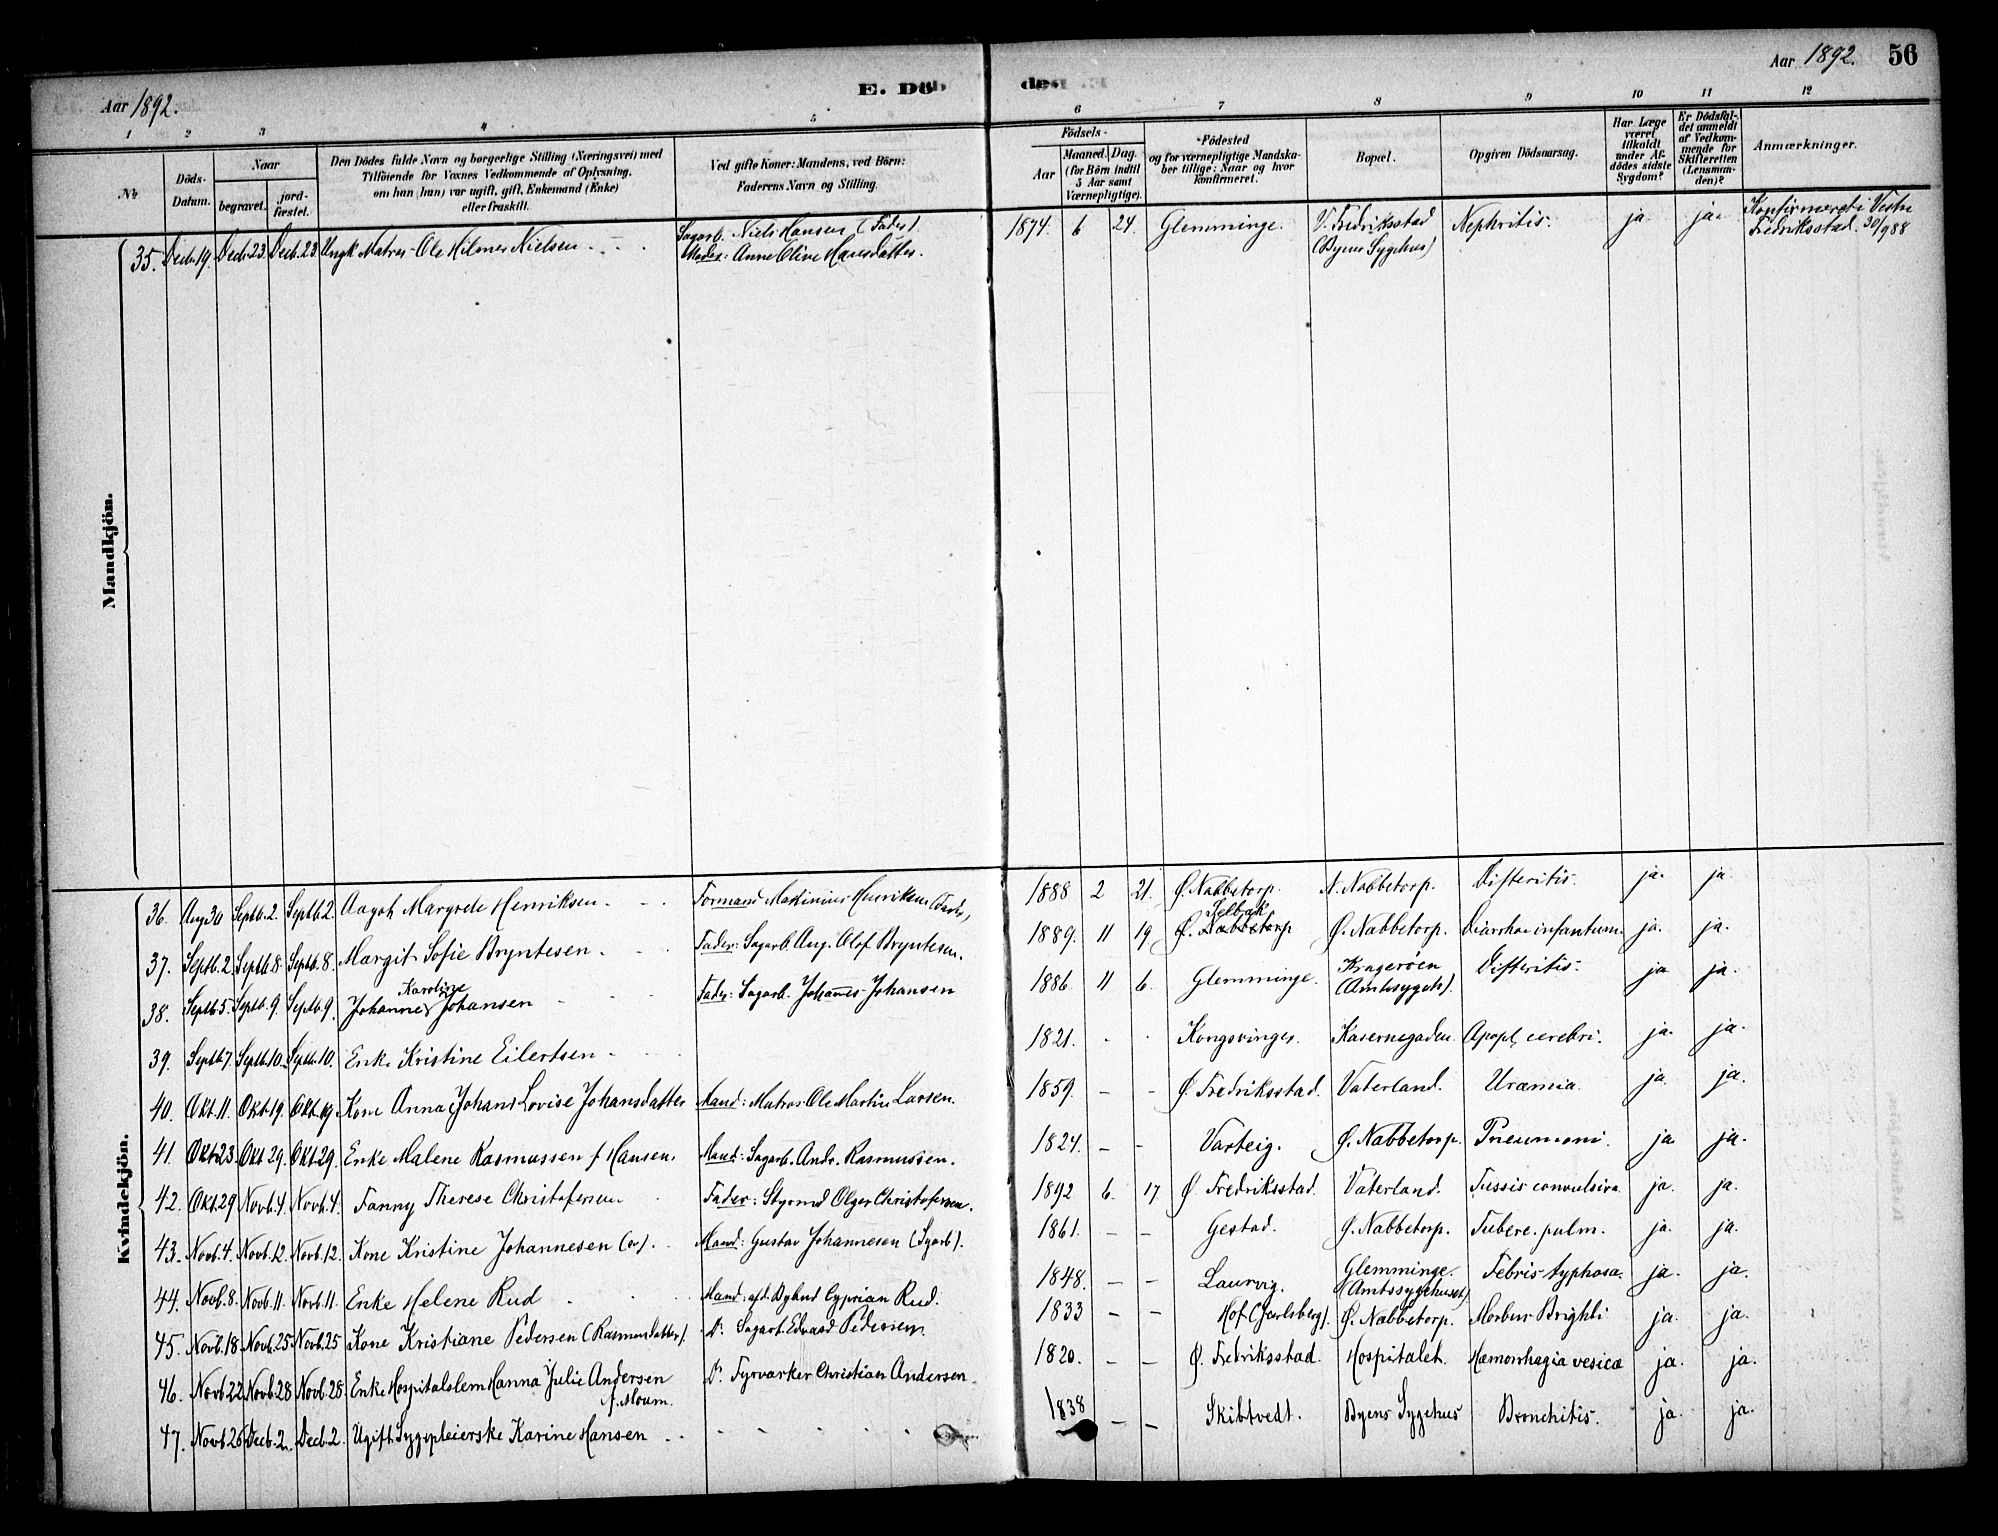 Aar 1892.
E. Döde.
Aar 1892. 56
1 2 3 4 5 6 7 8 9 10 11 12
No.
Döds-Datum.
Naar
begravet.
jord-fæstet.
Den Dödes fulde Navn og borgerlige Stilling (Næringsvei) med
Tilföiende for Voxnes Vedkommende af Oplysning,
om han (hun) var ugift, gift, Enkemand (Enke)
eller fraskilt.
Ved gifte Koner: Mandens, ved Börn:
Faderens Navn og Stilling.
Födsels-
Aar
Maaned. Dag.
(for Börn indtil
5 Aar samt
Værnepligtige).
Födested
og for værnepligtige Mandska-
ber tillige: Naar og hvor
konfirmeret.
Bopæl.
Opgiven Dödsaarsag.
Har Læge
været
tilkaldt
under Af-
dödes sidste
Sygdom?
Er Dödsfal-
det anmeldt
af Vedkom-
mende for
Skifteretten
(Lensman-
den)?
Anmærkninger.
Mandkjön.
35. Decb. 19. Decb. 23. Decb. 23 Ungk. Matros Ole Hilmer Nielsen. Sagarb. Niels Hansen (Fader) 1874. 6 24. Glemminge. V. Fredriksstad Nephritis. ja. ja. Konfirmeret i Vestre
Moder: Anne Olive Hansdatter. (Byens Sygehus) Fredriksstad. 30/9 88
Kvindekjön.
36. Aug 30 Septb. 2. Septb. 2. Aagot Margrete Henriksen. Formand Henriksen (Fader) 1888 2 21. Ø. Nabbetorp. N. Nabbetorp. Difteritis. ja. ja.
Selbak
37. Septb. 2. Septb. 8. Septb. 8. Margit Sofie Bryntesen Fader: Sagarb. Aug. Olof Bryntesen. 1889. 11 19 Ø. Nabbetorp Ø. Nabbetorp. Diarrhoe infantum ja. ja.
Karoline
38. Septb. 5. Septb. 9. Septb. 9. Johanne Johansen Fader: Sagarb. Johannes Johansen 1886 11 6. Glemminge. Kragerøen Difteritis. ja ja.
(Amtssygeh).
39. Septb. 7. Septb. 10. Septb. 10. Enke Kristine Eilertsen 1821. Kongsvinger. Kasernegaden. Apopl. cerebri. ja. ja.
40. Okt. 11. Okt. 19. Okt. 19. Kone Anna Johans Lovise Johansdatter Mand: Matros Ole Martin Larsen. 1859. – – Ø. Fredriksstad. Vaterland. Uræmia. ja. ja.
41. Okt 23. Okt 29. Okt 29. Enke Malene Rasmussen f. Hansen. Mand: Sagarb. Andr. Rasmussen. 1824. – – Varteig. Ø. Nabbetorp. Pneumoni. ja ja.
42. Okt. 29 Novb. 4. Novb. 4. Fanny Therese Christofersen Fader: Styrmd Olger Christofersen. 1892 6. 17. Ø Fredriksstad. Vaterland. Tussis convulsiva. ja. ja.
43. Novb. 4. Novb. 12. Novb. 12. Kone Kristine Johannesen Mand: Gustav Johannesen 1861. – – Gestad. Ø. Nabbetorp. Tuberc. pulm. ja. ja.
44. Novb. 8. Novb. 11. Novb. 11. Enke Helene Rud Mand: afd. Cyprian Rud. 1848. – – Laurvig. Glemminge. Febris typhosa. ja. ja.
(Amtssygehuset)
45. Novb. 18 Novb. 25 Novb. 25 Kone Kristiane Pedersen (Rasmusdatter). Do Sagarb. Edvard Pedersen. 1833 Hof (Jarlsberg). Ø. Nabbetorp. Morbus Brighti ja. ja.
46. Novb. 22 Novb. 28 Novb. 28. Enke Hospitalslem Hanna Julie Andersen Do Fyrvarker Christian Andersen. 1820. – – Ø. Fredriksstad. Hospitalet. Hæmorrhagia vesicæ ja. ja.
f. Moum.
47. Novb. 26 Decb. 2. Decb. 2. Ugift Sygepleierske Karine Hansen 1838 – – Skibtvedt. Byens Sygehus Bronchitis. ja. ja.